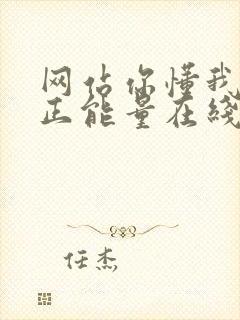 网估你懂我
正能量在线
任杰